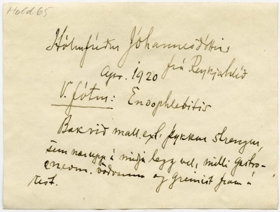 Mold 65
Hólmfríður Jóhannesdóttir
Apr. 1920 frá Reykjahlíð
V. fótur: Endophlebitis
Bak við mall. ext. þykkur strengur,
sem nær upp á miðjan legg vel, milli Gastro-
cnem. vöðvanna og greinist fram